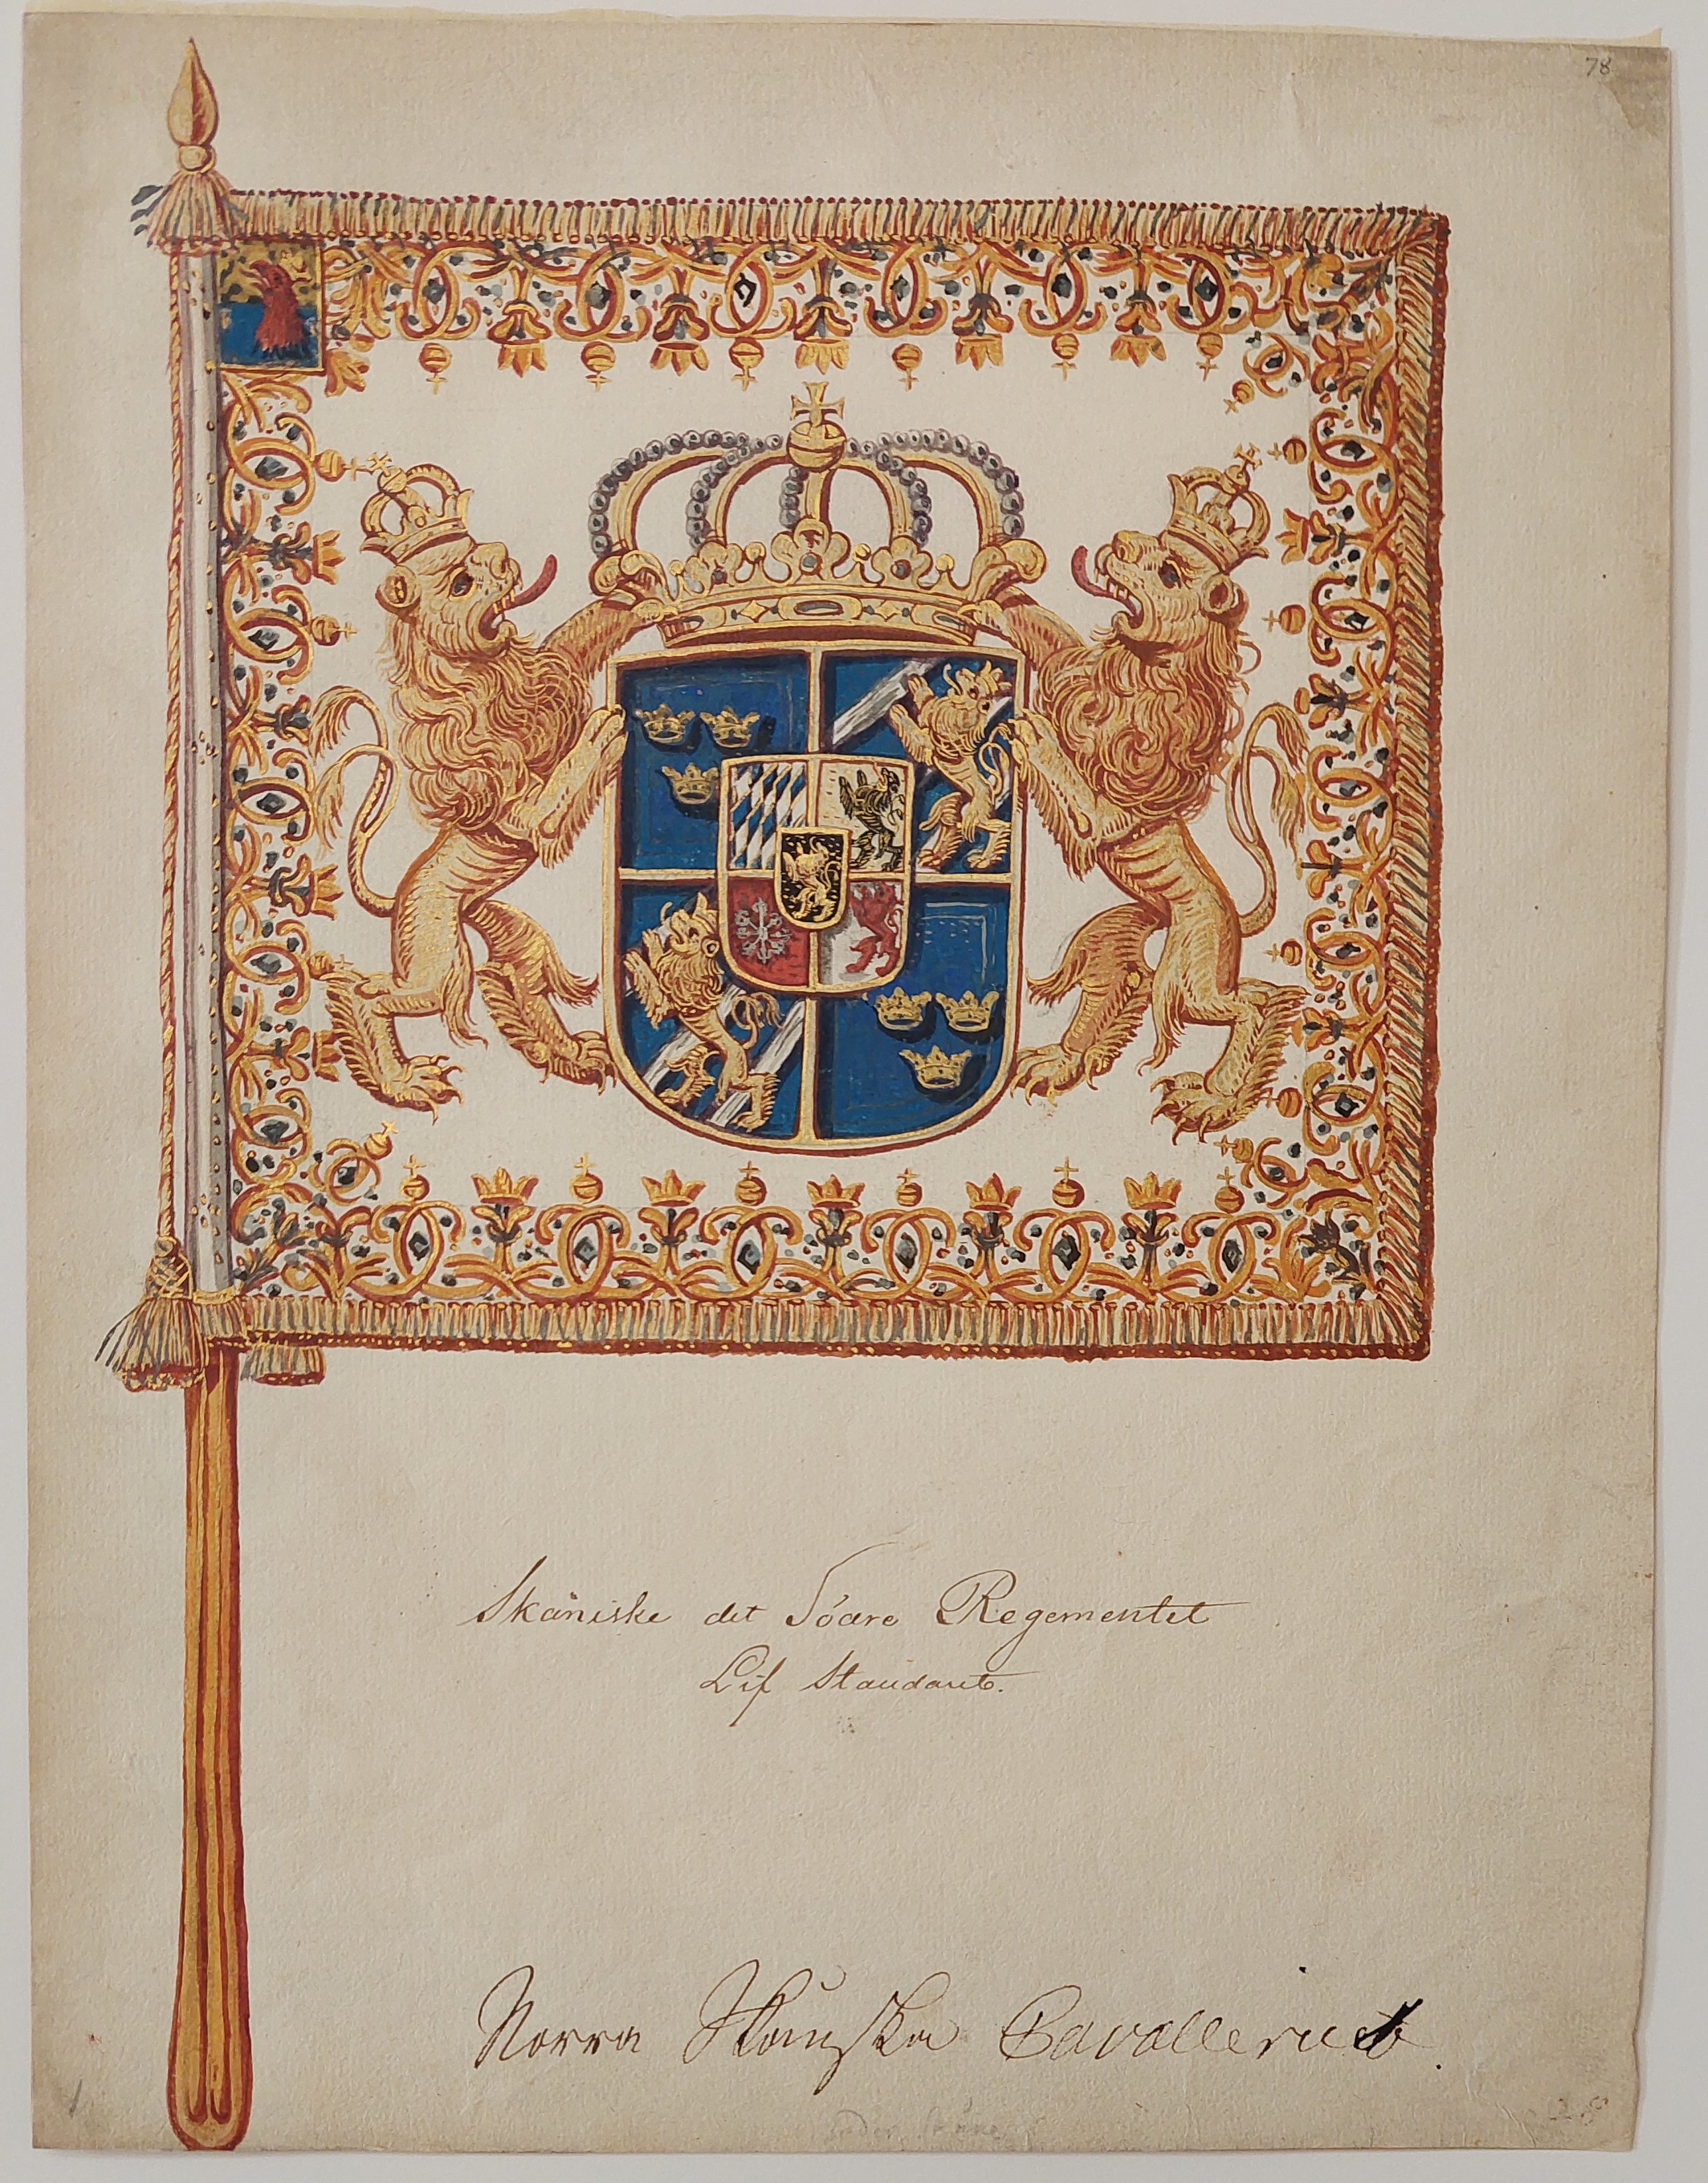 78
Skåniske det Södre Regementet
Lif Standart.
Norra Skånska Cavalleriet.
28